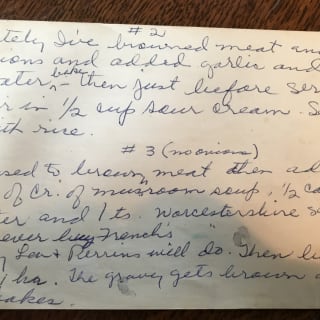 #2
tely I've browned meat an
ions and added garlic and
ater bake - then just before ser
r in 1/2 cup sour cream. S
ith rice.
#3 (no onions)
sed to brown meat then ad
of Cr. of mushroom soup, 1/2 ca
ter and 1 ts. Worcestershire s
ever buy French's
Lea & Perrins will do. Then
hr. The gravy gets brown a
akes.